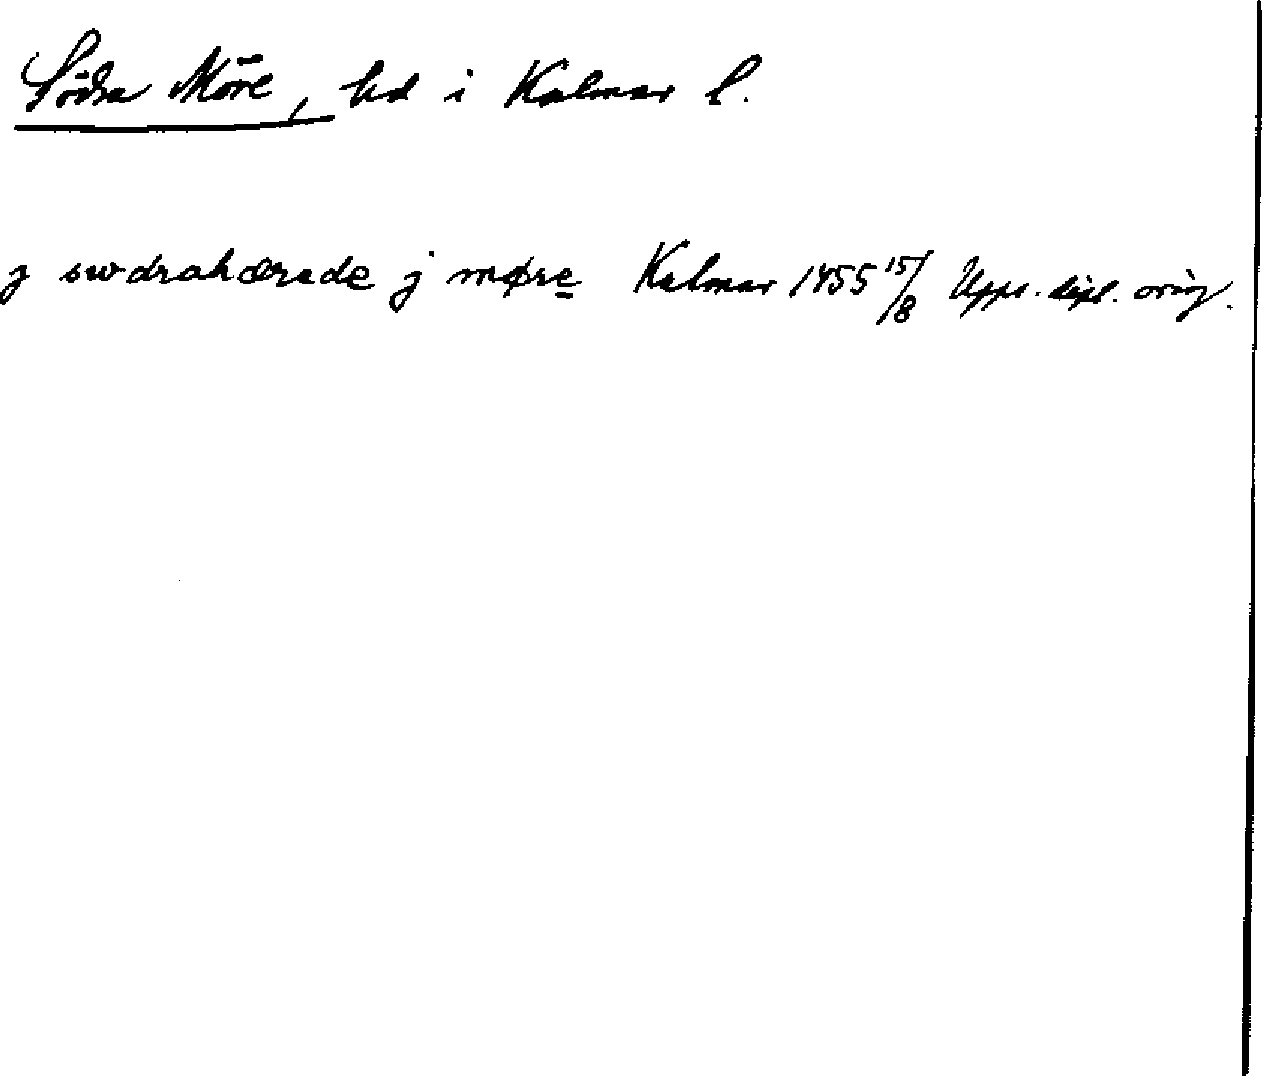 Södra Möre, hd i Kalmar l.
j swdrahærade j møre Kalmar 1455 15/8 Upps. dipl. orig.